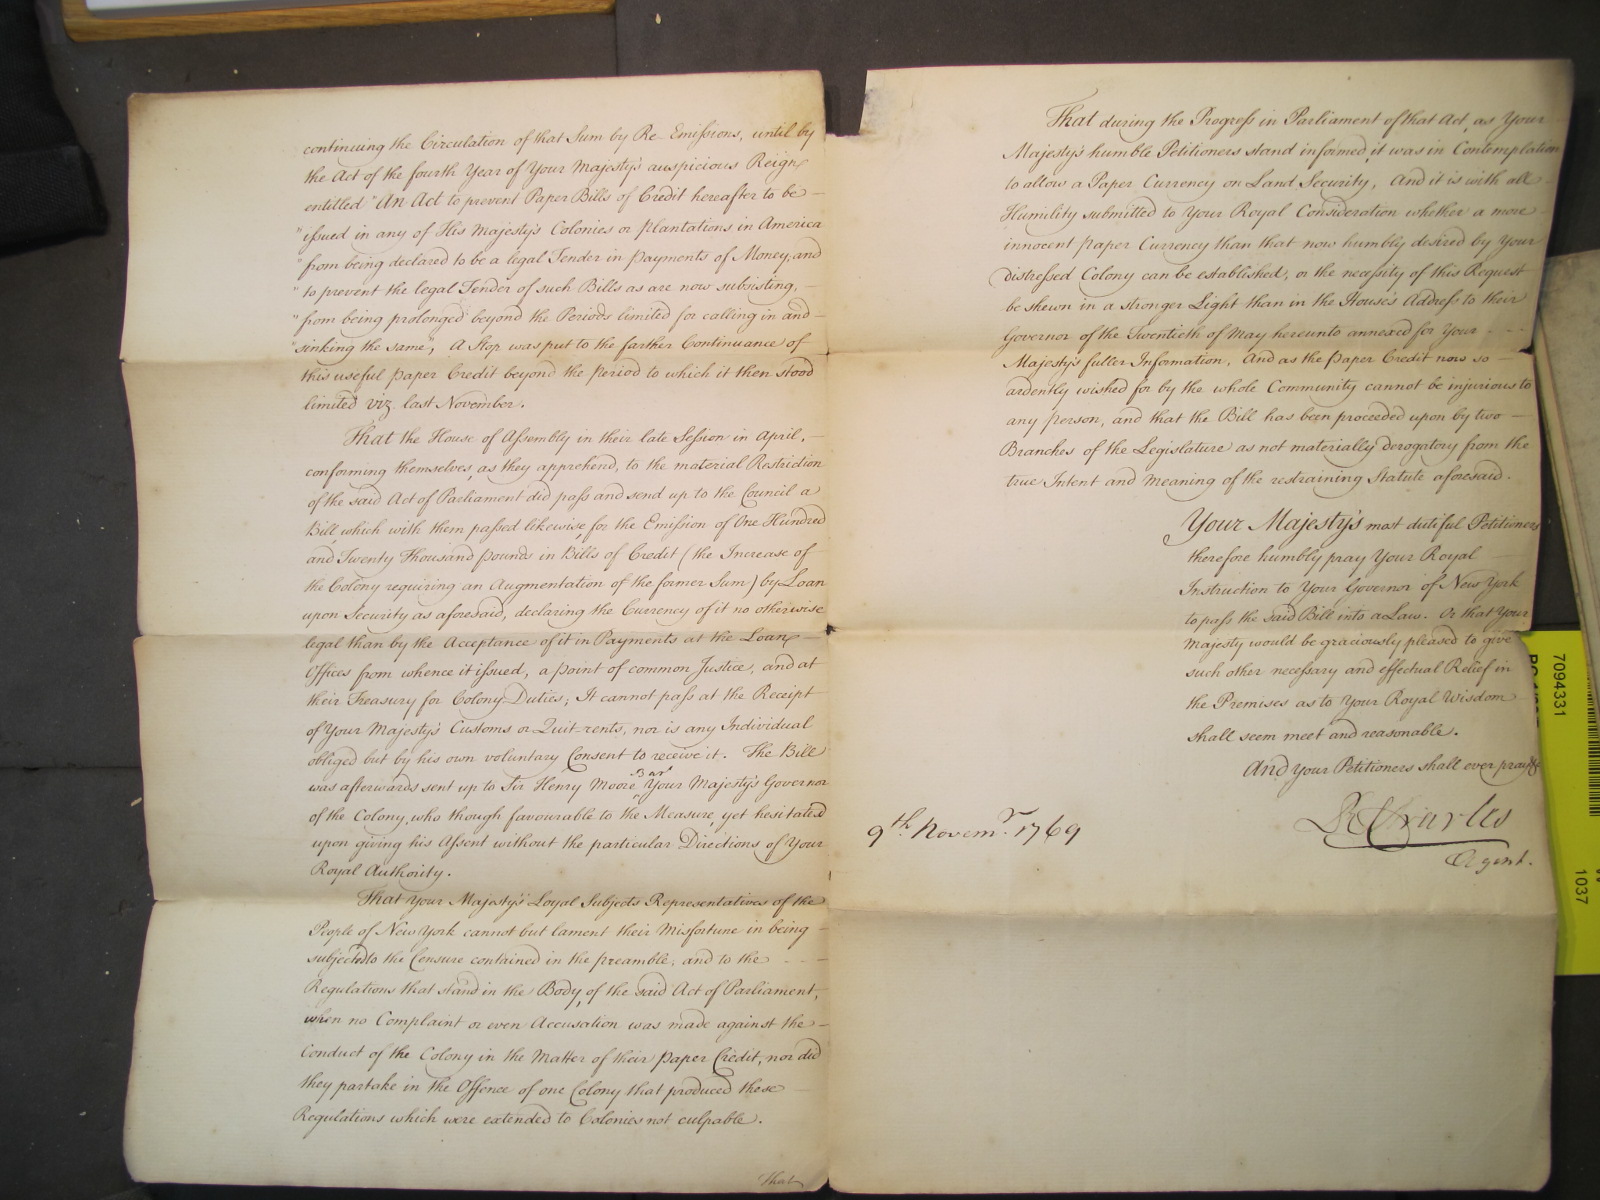 continuing the Circulation of that Sum by Re-Emissions, until by
the Act of the fourth Year of Your Majesty's auspicious Reign
entitled "An Act to prevent Paper Bills of Credit hereafter to be —
" issued in any of His Majesty's Colonies or plantations in America
" from being declared to be a legal Tender in payments of Money, and
" to prevent the legal Tender of such Bills as are now subsisting, —
" from being prolonged beyond the Periods limited for calling in and —
" sinking the same", A Stop was put to the farther Continuance of
this useful paper Credit beyond the Period to which it then stood
limited viz. last November.
That the House of Assembly in their late Session in April, —
conforming themselves, as they apprehend, to the material Restriction
of the said Act of Parliament did pass and send up to the Council a
Bill, which with them passed likewise, for the Emission of One Hundred
and Twenty Thousand pounds in Bills of Credit (the Increase of
the Colony requiring an Augmentation of the former Sum) by Loan
upon Security as aforesaid, declaring the Currency of it no otherwise
legal than by the Acceptance of it in Payments at the Loan —
Offices from whence it issued, a point of common Justice, and at
their Treasury for Colony Duties; It cannot pass at the Receipt
of Your Majesty's Customs or Quit-rents, nor is any Individual
obliged but by his own voluntary Consent to receive it. The Bill
was afterwards sent up to Sir Henry Moore Bart Your Majesty's Governor
of the Colony, who though favourable to the Measure, yet hesitated
upon giving his Assent without the particular Directions of Your
Royal Authority.
That Your Majesty's Loyal Subjects Representatives of the
People of New York cannot but lament their Misfortune in being —
subjected to the Censure contained in the preamble, and to the - - -
Regulations that stand in the Body, of the said Act of Parliament,
when no Complaint or even Accusation was made against the —
Conduct of the Colony in the Matter of their Paper Credit, nor did
they partake in the Offence of one Colony that produced these —
Regulations which were extended to Colonies not culpable.
That
That during the Progress in Parliament of that Act, as Your
Majesty's humble Petitioners stand informed, it was in Contemplation
to allow a Paper Currency on Land Security, And it is with all
Humility submitted to Your Royal Consideration whether a more —
innocent paper Currency than that now humbly desired by Your
distressed Colony can be established, or the necessity of this Request
be shewn in a stronger Light than in the House's Address to their
Governor of the Twentieth of May hereunto annexed for Your - - -
Majesty's fuller Information, And as the Paper Credit now so —
ardently wished for by the whole Community cannot be injurious to
any person, and that the Bill has been proceeded upon by two —
Branches of the Legislature as not materially derogatory from the
true Intent and Meaning of the restraining Statute aforesaid.
Your Majesty's most dutiful Petitioners
therefore humbly pray Your Royal —
Instruction to Your Governor of New York
to pass the said Bill into a Law. Or that Your
Majesty would be graciously pleased to give
such other necessary and effectual Relief in
the Premises as to Your Royal Wisdom
shall seem meet and reasonable.
And Your Petitioners shall ever pray &c
9th Novemr. 1769
Rt Charles
Agent.
7094331
1037